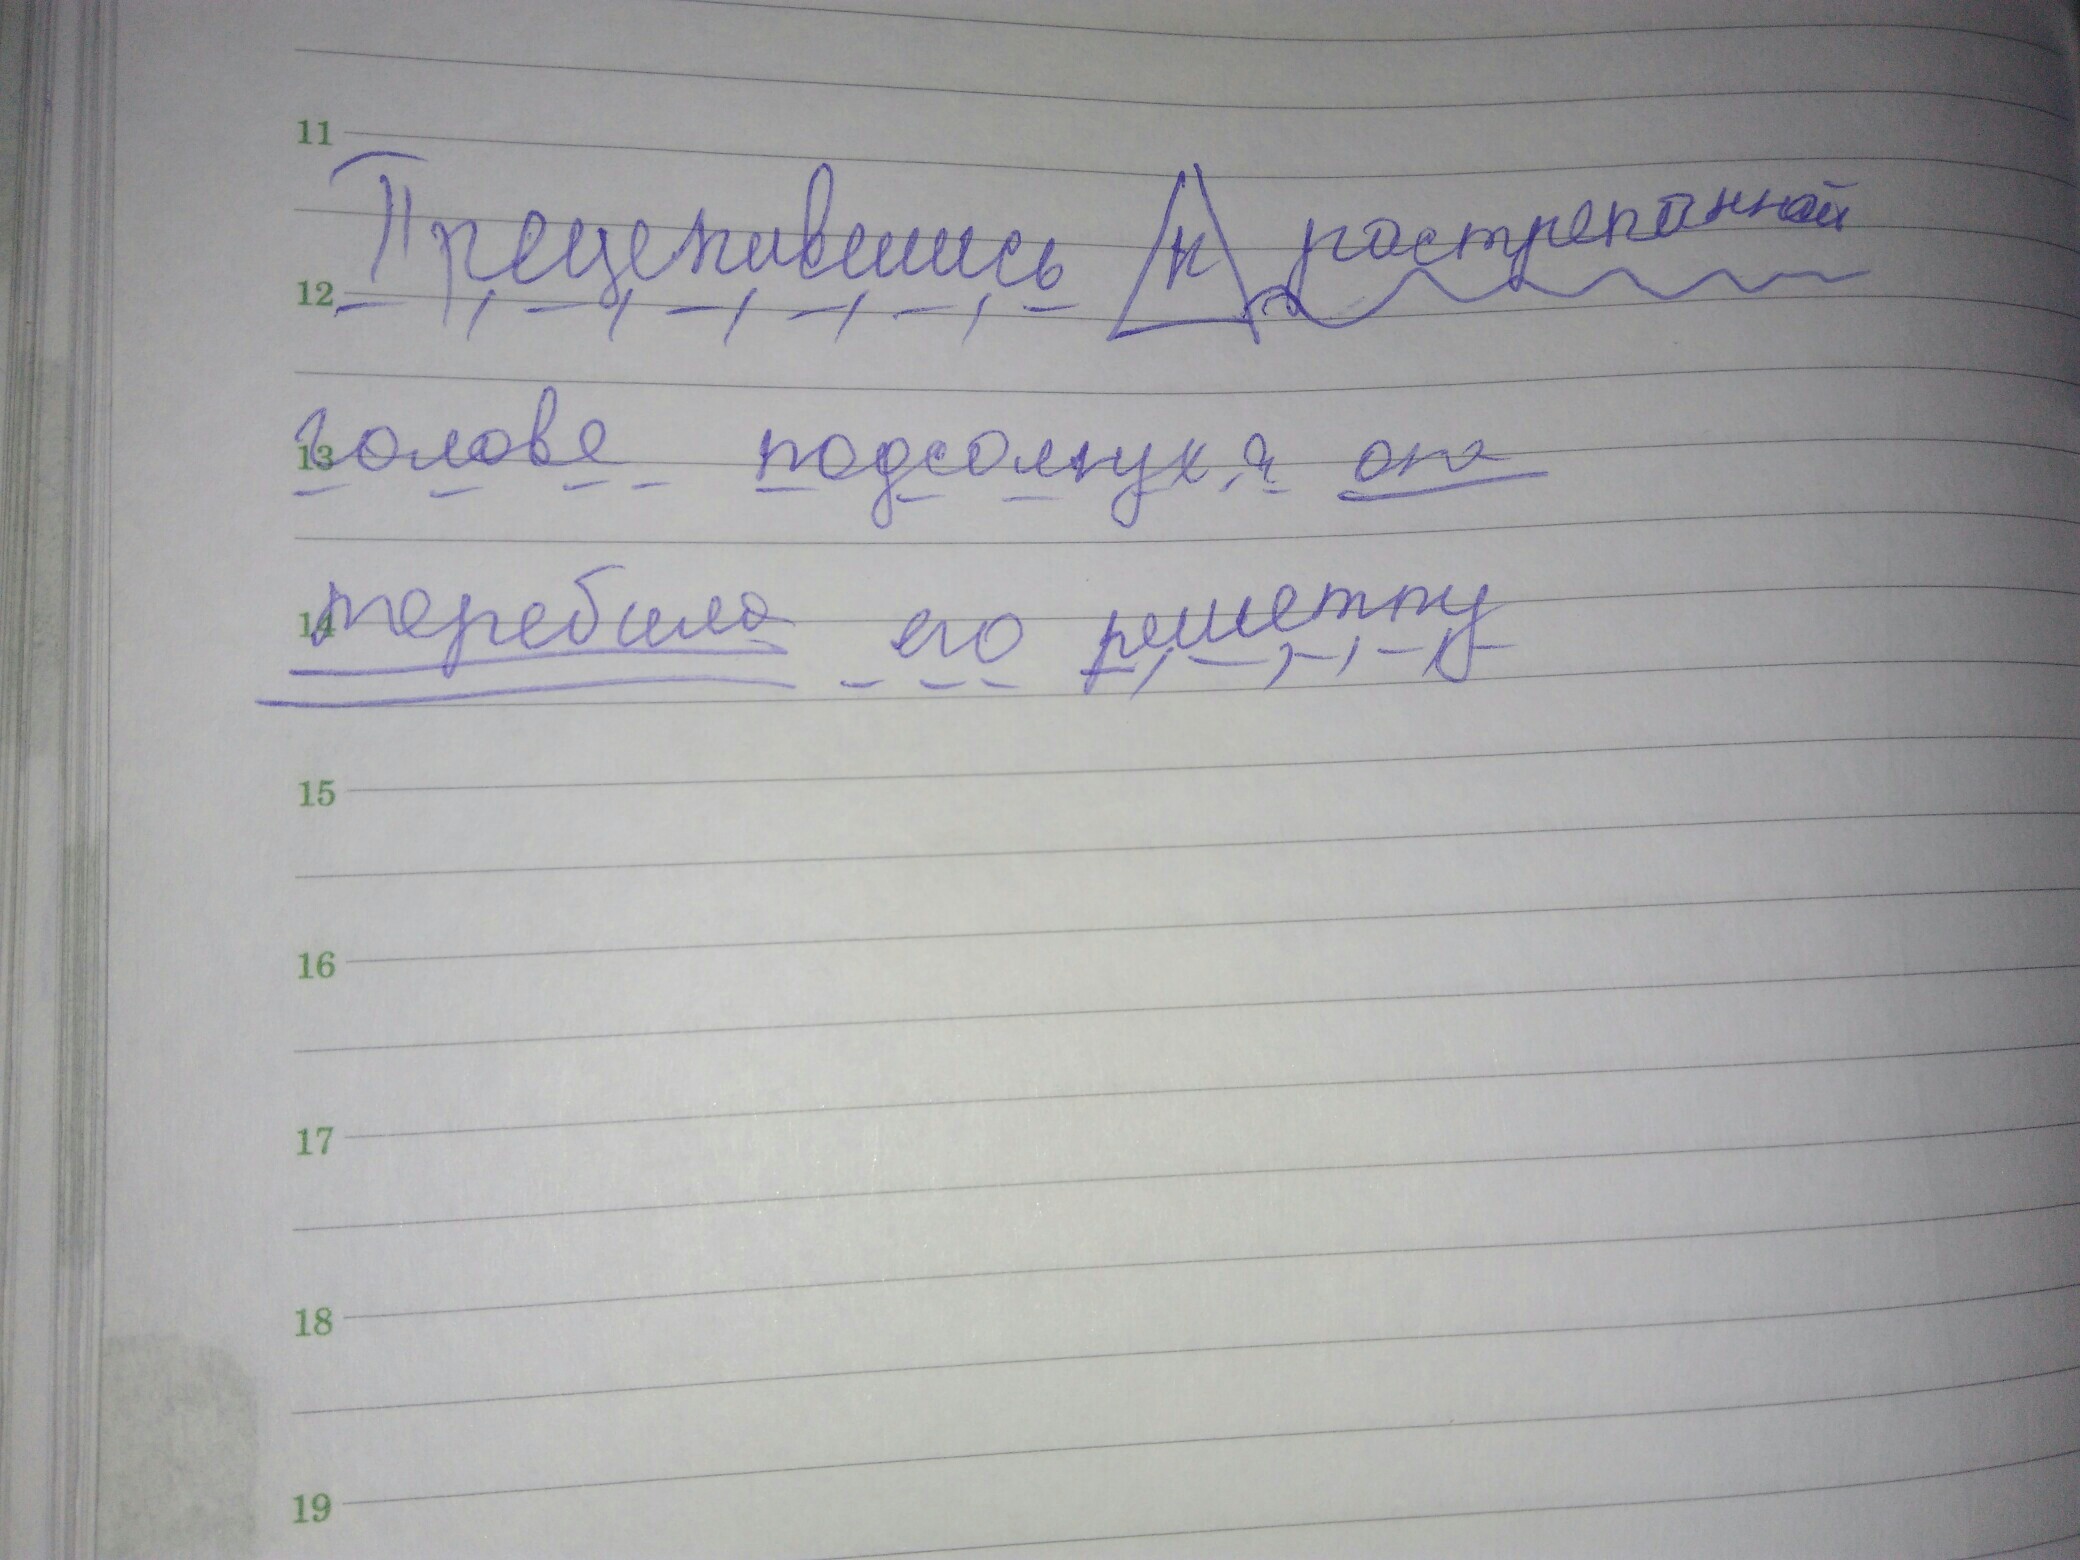 11
Прецепившись к растрепанной
12
13 голове подсолнуха она
14 теребила его решетку
15
16
17
18
19